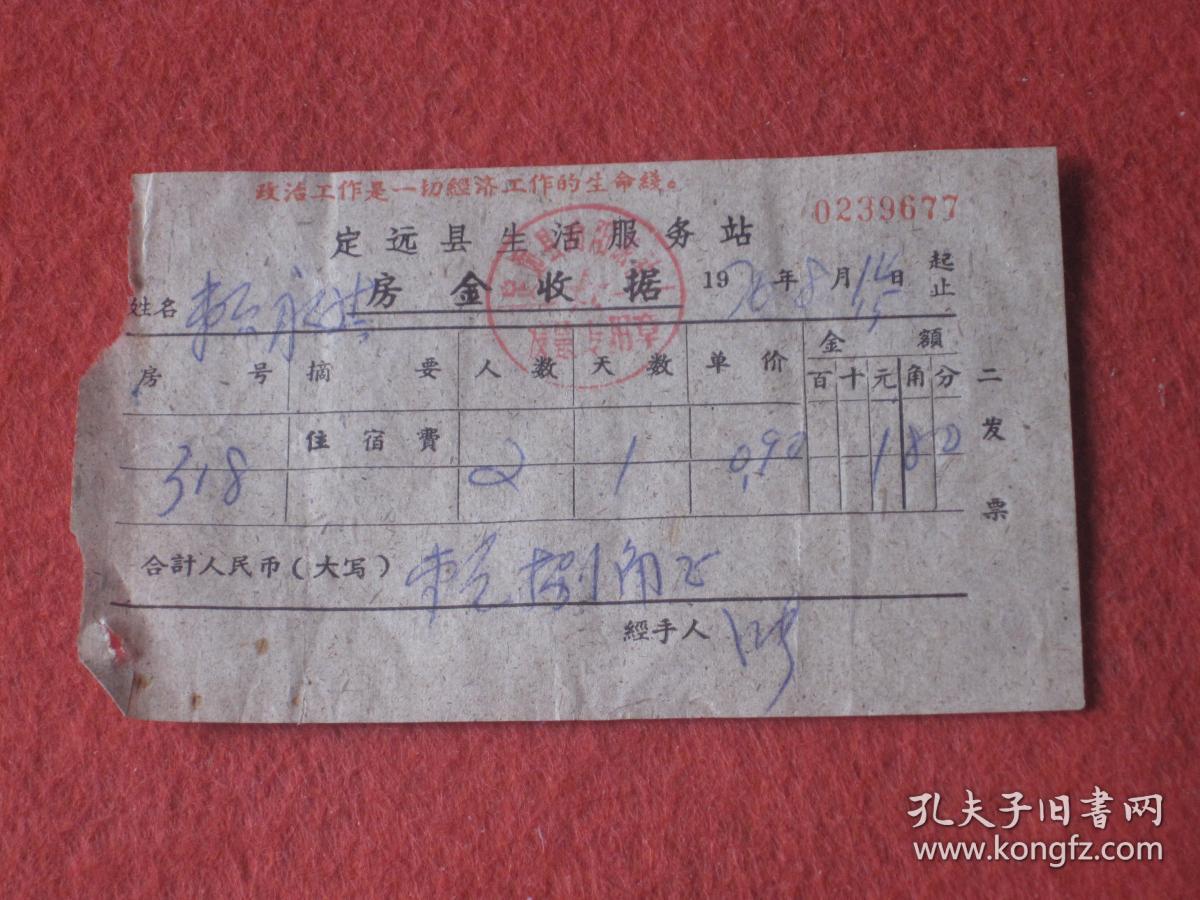 政治工作是一切經济工作的生命綫。
0239677
定远县生活服务站
房金收据 19 年8月 日 起止
姓名
房号 摘要 人数 天数 单价 金額
百十元角分
318 住宿費 2 1 0.90 1 8 0
合計人民币(大写) 捌角正
經手人
二发票
发票专用章
孔夫子旧书网
www.kongfz.com